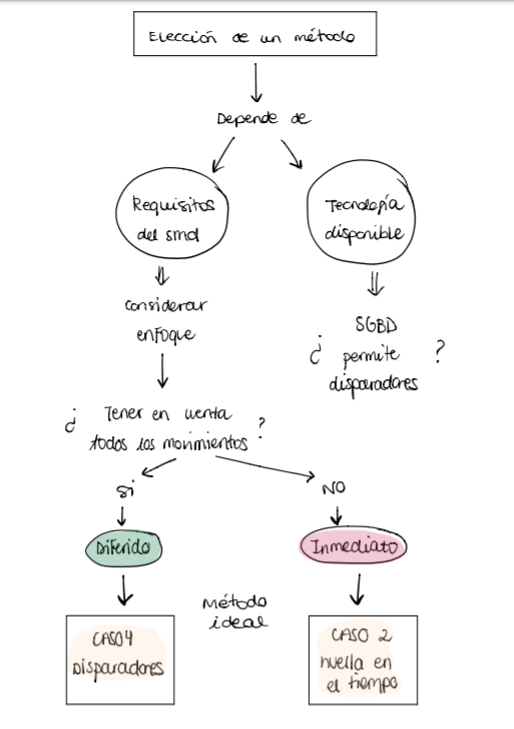 Elección de un método
Depende de
Requisitos
del smd
Tecnología
disponible
considerar
enfoque
SGBD
¿ permite ?
disparadores
¿ Tener en cuenta ?
todos los movimientos
Si
NO
Diferido
Inmediato
Método
ideal
CASO 4
Disparadores
CASO 2
huella en
el tiempo